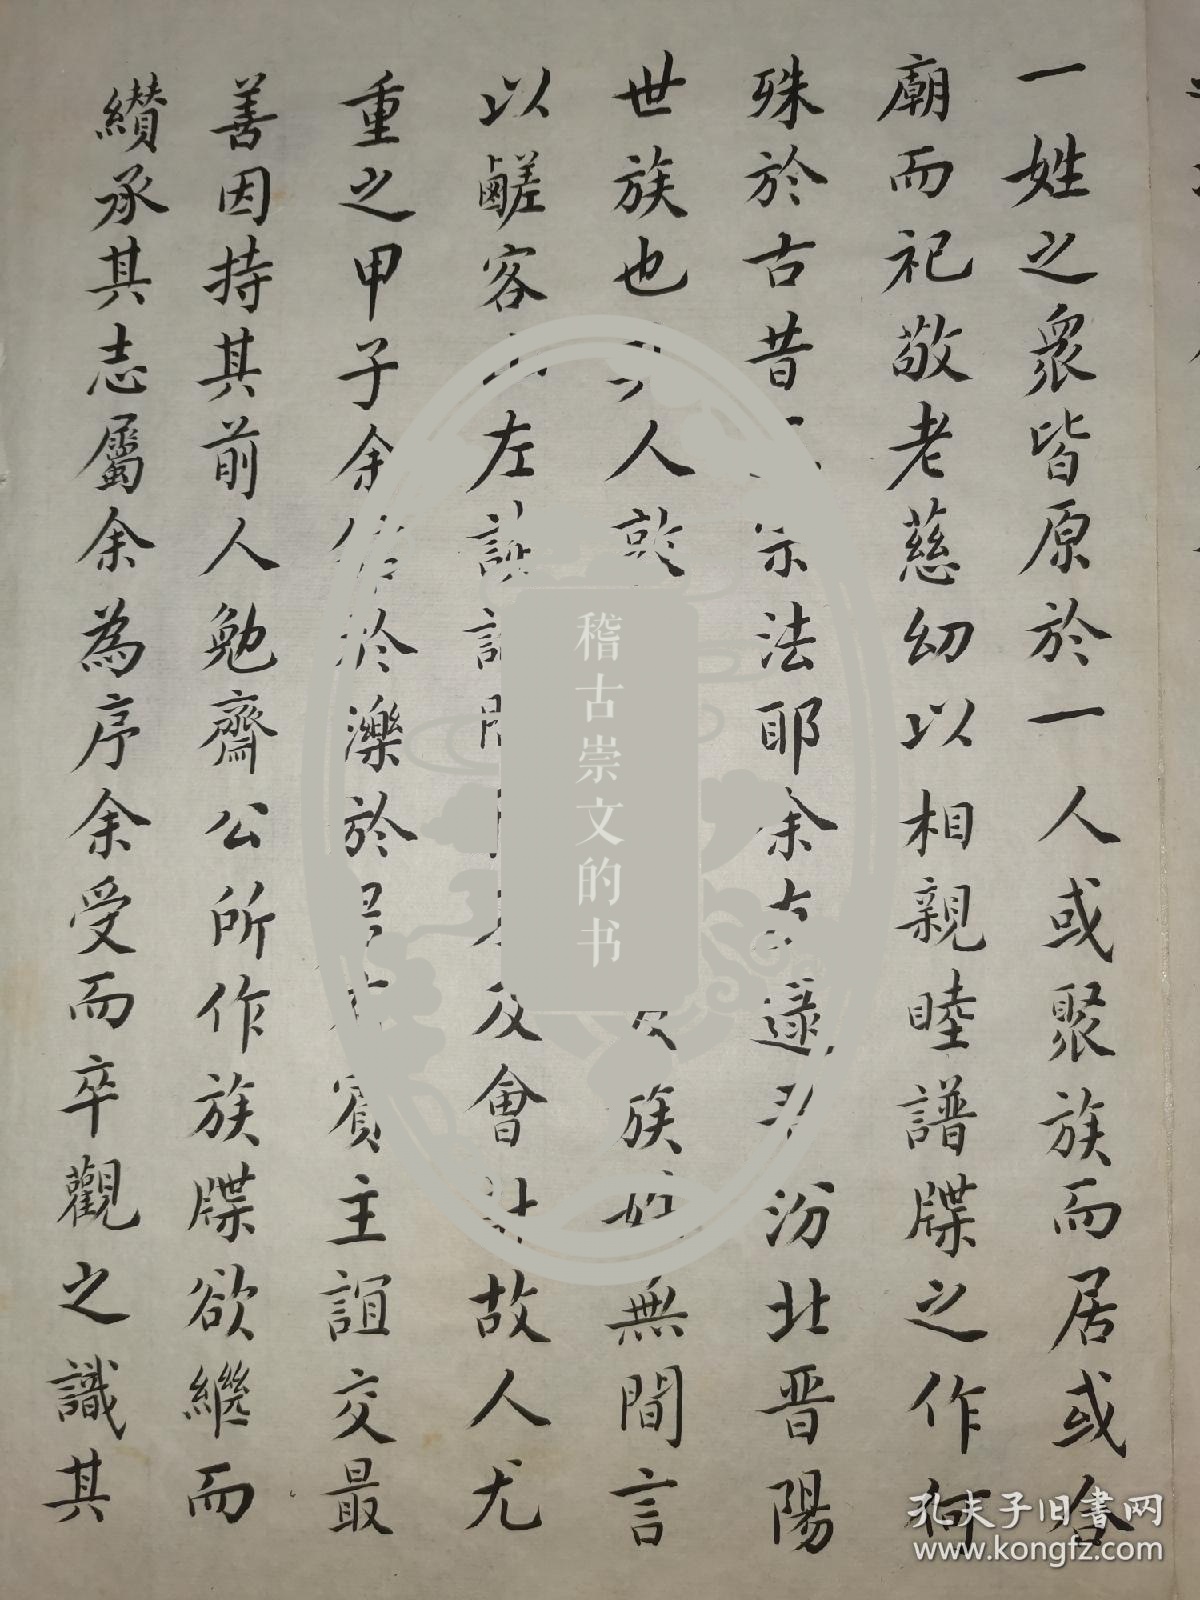 一姓之衆皆原於一人或聚族而居或合
廟而祀敬老慈幼以相親睦譜牒之作何
殊於古昔宗法耶余逯汾北晋陽
世族也人族無間言
以鹺客左及會計故人尤
重之甲子余作於濼於賓主誼交最
善因持其前人勉齋公所作族牒欲繼而
纘承其志屬余為序余受而卒觀之識其
稽古崇文的书
孔夫子旧書网
www.kongfz.com